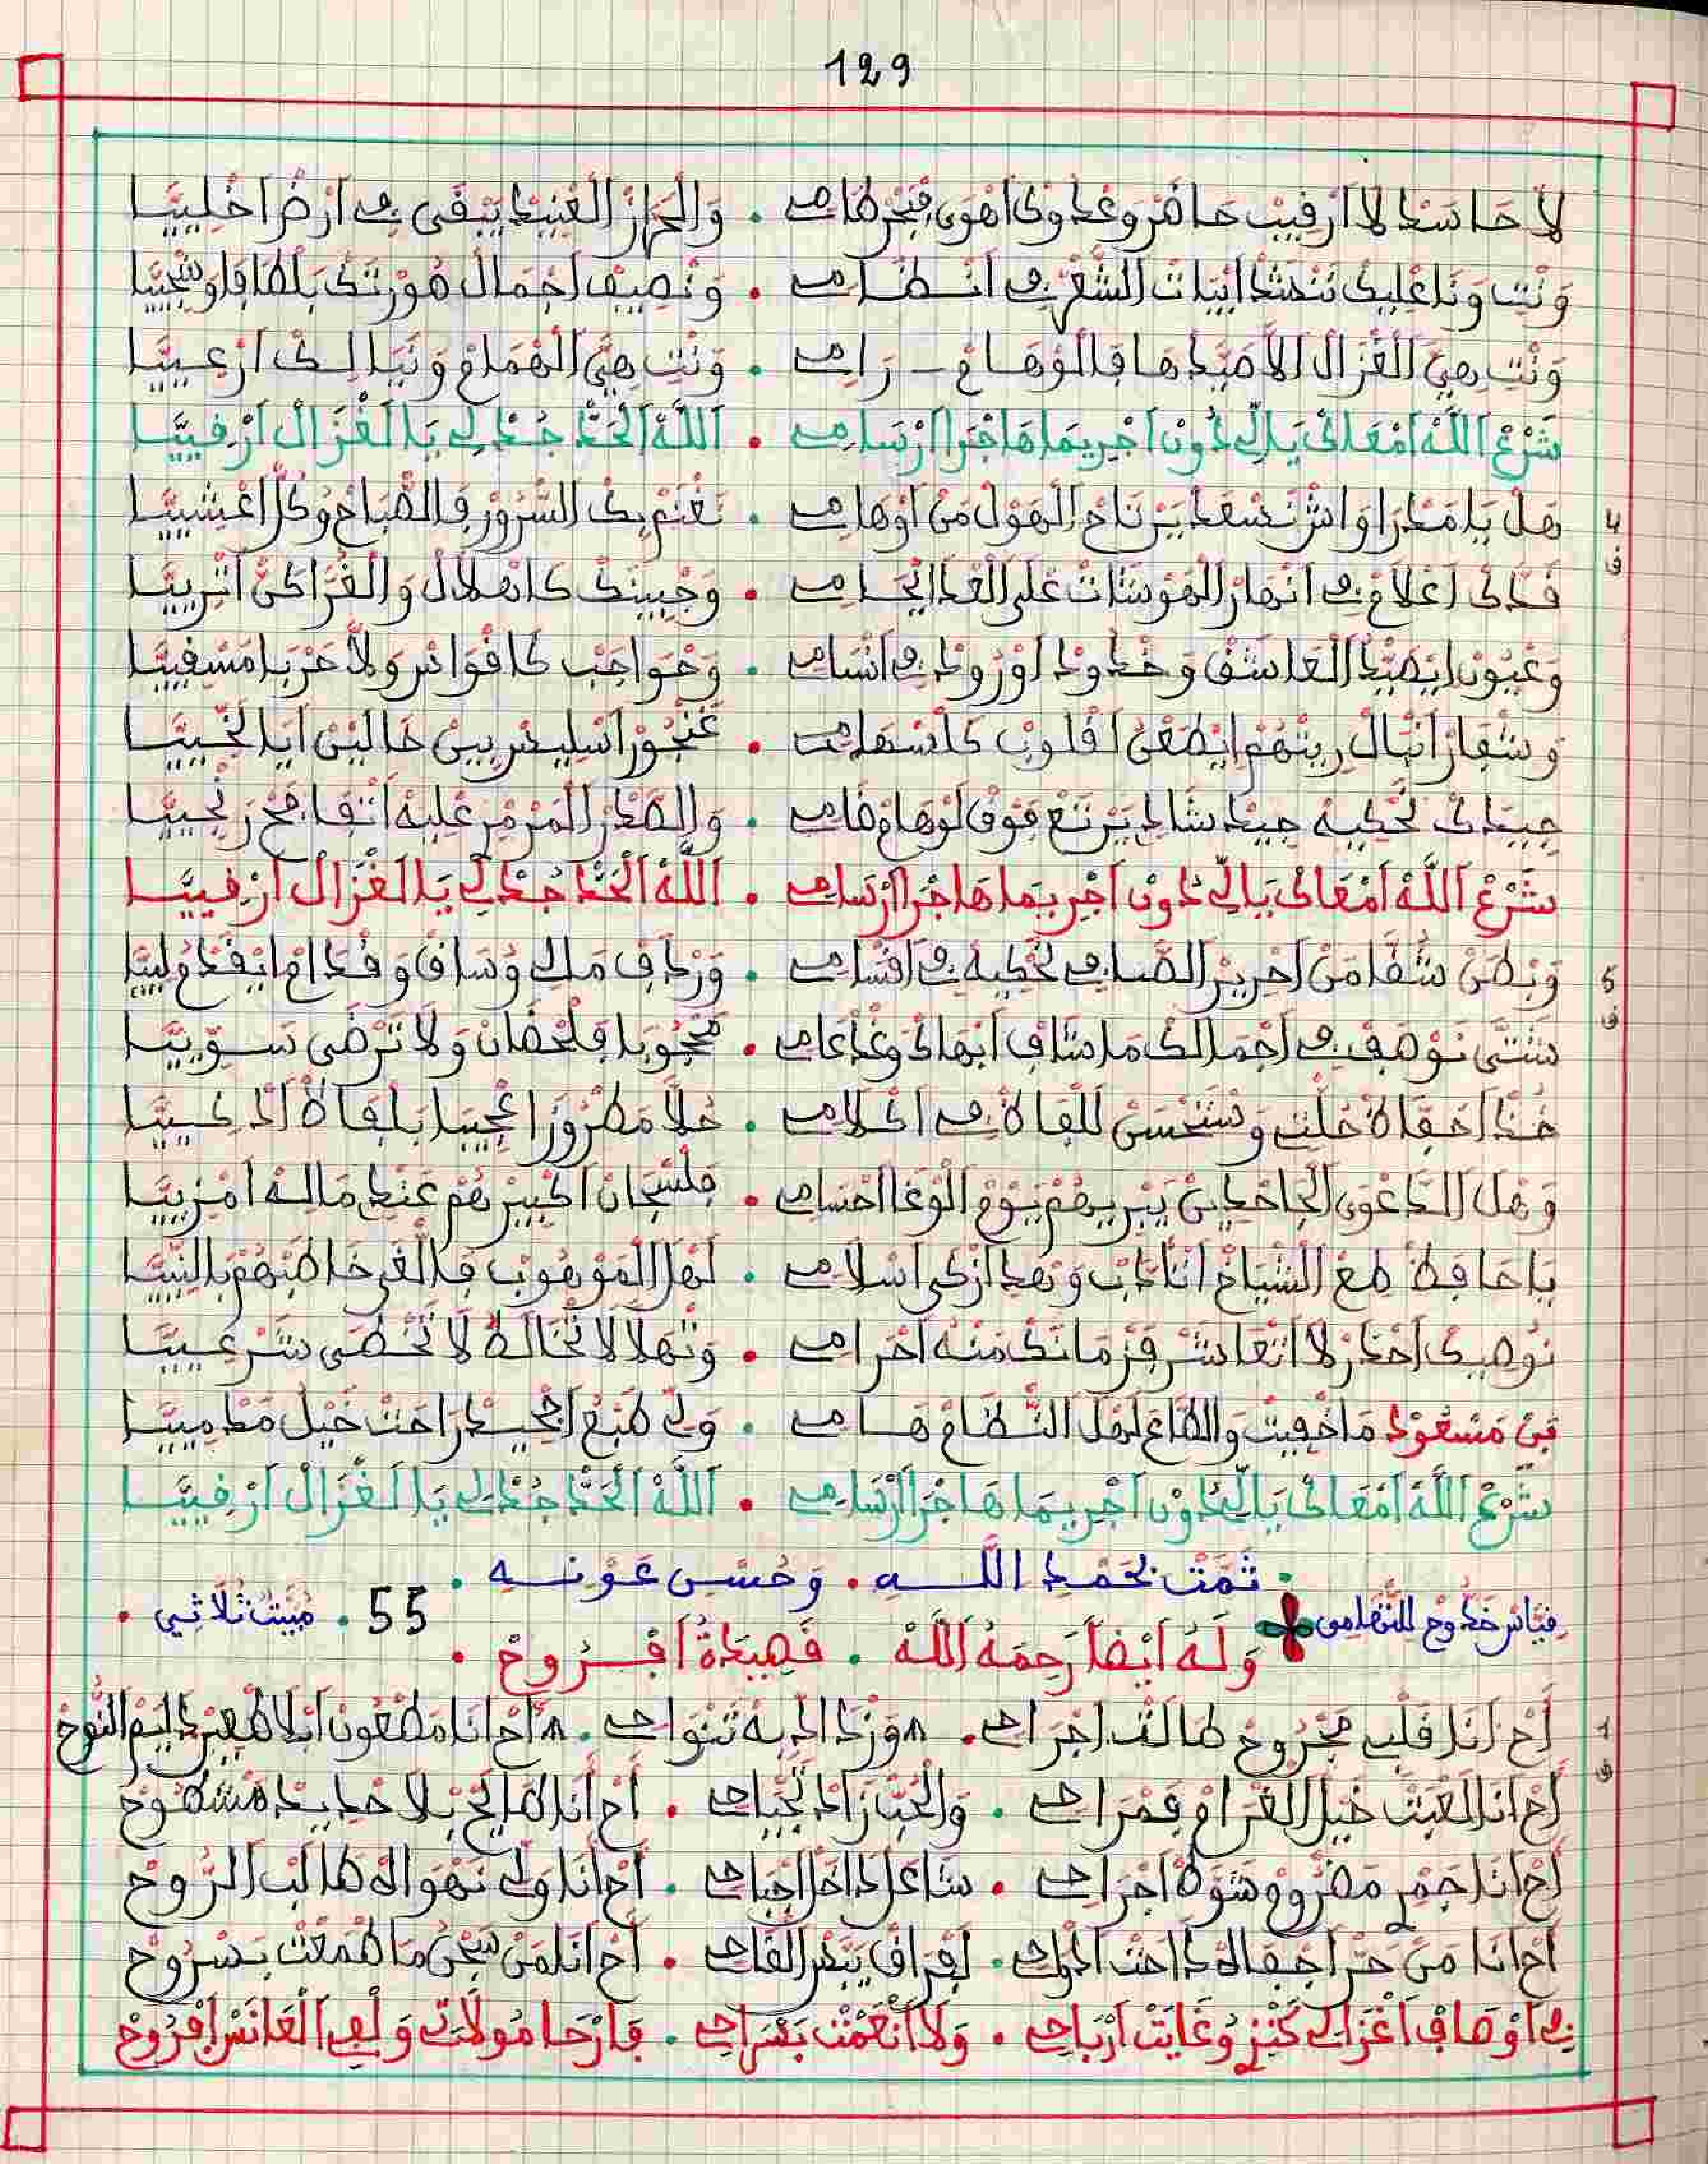 129
لَا حَاسَدْ لَا ارْقِيبْ حَاضَرْ وَعْدُوكْ اهْوَى فِيجَرْ طَامِي . وَالْحَرَّازْ الْعْنِيدْ يَبْقَى فِي ارْضْ اخْلِيَّا
وَنْتِ وَنَا عْلِيكْ نَنْشَدْ ابْيَاتْ الشَّعْرْ فِي انْظَامِي . وَنْصِيفْ اجْمَالْ صُورْتَكْ بَلْطَافَا وَسْجِيَّا
وَنْتِ هِيَ الْغْزَالْ الَاصَيَّدْهَا فَالْوْهَامْ رَامِي . وَنْتِ هِيَّ الْهْمَامْ وَنَيَا لِكْ ارْعِيَّا
شَرْعْ اللَّهْ امْعَاكْ يَالِّي دُونْ اجْرِيمَا هَاجْرَا ارْسَامِي . اللَّهْ الْحَدّْ جُدْ لِي يَا الْغْزَالْ ارْقِيَّا
4
ف
هَلْ يَا مَدْرَا وَاشْ نَسْعَدْ يَرْتَاحْ الْهَوْلْ مَنْ اوْهَامِي . نَغْنَمْ بِكْ السّْرُورْ فَالصّْبَاحْ وُكُلّْ اعْشِيَّا
قَدَّكْ اعْلَامْ فِي انْهَارْ الْهَوْشَاتْ عْلَى الْعْدَا الْحَامِي . وَجْبِينَكْ كَاهْلَالْ وَالْغُرَّا كَنْ اتْرِيَّا
وَعْيُونْ ايْصَيّْدْ الْعَاشَقْ وَخْدُودْ اوْرُودْ فِي انْسَامِي . وَحْوَاجَبْ كَا قْوَاسْ وَلَّا حَرْبَا مَسْقِيَّا
وَشْفَارْ انْبَالْ رِيشْهُمْ ايْطَعْنْ لَقْلُوبْ كَا اسْهَامِي . غَنْجُورْ اسْلِيسْ بِينْ خَالِينْ ايَا لَخِّيَّا
جِيدَكْ نَحْكِيهْ جِيدْ شَادِي يَرْتَعْ فَوْقْ لَوْهَامْ ضَامِي . وَالصَّدْرْ الْمَرْمْرِ عْلِيهْ اتْفَافَحْ رَنْجِيَّا
شَرْعْ اللَّهْ امْعَاكْ يَالِّي دُونْ اجْرِيمَا هَاجْرَا ارْسَامِي . اللَّهْ الْحَدّْ جُدْ لِي يَا الْغْزَالْ ارْقِيَّا
5
ف
وَبْطَنْ شَقَّا مَنْ احْرِيرْ الصَّامِي نَحْكِيهْ فِي اقْسَامِي . وَرْدَافْ مَلْكِ وُسَاقْ وَقْدَامْ ايْقَدْمُ لِيَّا
شَتَّى نَوْصَفْ فِي اجْمَالَكْ مَا شَافْ ابْهَاكْ وَغْدْ عَامِي . مَحْجُوبَا فَلْحْصَانْ وَلَا تَرْضَى سَوِّيَّا
خُدْ احْفَاظْ حُلْتِ وَسْتَحْسَنْ للْفَاظْ فِي اكْلَامِي . حُلَّا مَطْرُوزَا عْجِيبَا بَلْفَاظْ ادْكِيَّا
وَهْلْ الدَّعْوَى الْجَاحْدِينْ يَبْرِيهُمْ يَوْمْ الْوْغَا احْسَامِي . فَلْسْجَانْ اكْبِيرْهُمْ عَنْدِي مَا لَهْ امْزِيَّا
يَا حَافَظْ طَعْ الشّْيَاخْ اتَّادَبْ وَهْدْ ازْكَى اسْلَامِي . لَهْلْ الْمَوْهُوبْ فَالْغَى خَاطَبْهُمْ بَالنِّيَّا
نُوصِيكْ احْضَرْ لَا اتْعَاشَرْ فَزْمَانَكْ مَنْهُ احْرَامِي . وَتْهَلَّا لَا تْخَالَطْ لَا تَخْطَى شَرْعِيَّا
بَنْ مَسْعُودْ مَا خْفِيتْ وَالطَّاعَ لَهْلْ النّْظَامْ هَامِي . وَلِّي طَبْعُ اجْحِيدْ رَاحَتْ خَيْلُ مَدْمِيَّا
شَرْعْ اللَّهْ امْعَاكْ يَالِّي دُونْ اجْرِيمَا هَاجْرَا ارْسَامِي . اللَّهْ الْحَدّْ جُدْ لِي يَا الْغْزَالْ ارْقِيَّا
. تَمَّتْ بَحَمْدِ اللَّـــهِ . وَحُسْنِ عَوْنِـــهِ .
قياس خدوج للتهامي
55 . مْبَيَّتْ ثُلَاثِي .
وَلَهُ أَيْضاً رَحِمَهُ اللَّهْ . قَصِيدَةُ افْـــرُوحْ .
1
ق
أَحْ انَا قَلْبِي مَجْرُوحْ طَالْتْ اجْرَاحِي . وَزْدَادْ بِهْ تَنْوَاحِي . أَحْ انَا مَطْعُونْ ابْلَا اطْعِيرْ دَايَمْ النُّوحْ
أَحْ انَا لَعْبَتْ خَيْلْ الغْرَامْ فَمْرَاحِي . وَالْحُبّْ زَادْ تَجْيَاحِي . أَحْ انَا طَايَحْ بْلَا حْدِيدْ مَشْطُوحْ
أَحْ انَا جَمْرِ مَضْرُومْ شَوَّطْ اجْرَاحِي . شَاعَلْ دَاخَلْ اجْبَاحِي . أَحْ انَا وَلِّي نَهْوَاهْ طَالَبْ الرُّوحْ
أَحْ انَا مَنْ حَرّْ اجْفَاهْ دَاحَتْ ادْوَاحِي . لَفْرَاقْ يَتَّمْ الْقَاحِي . أَحْ انَا مَنْ سَجْنُ مَا طْمَعْتْ بَسْرُوحْ
فِي اوْصَافْ اغْزَالِي كَنْزِ وُغَايَتْ ارْبَاحِي . وَلَا انْعَمْتْ بَسْرَاحِي . فَارْحَا مُولَاتِي وَلْفِي الْعَانَسْ افْرُوحْ